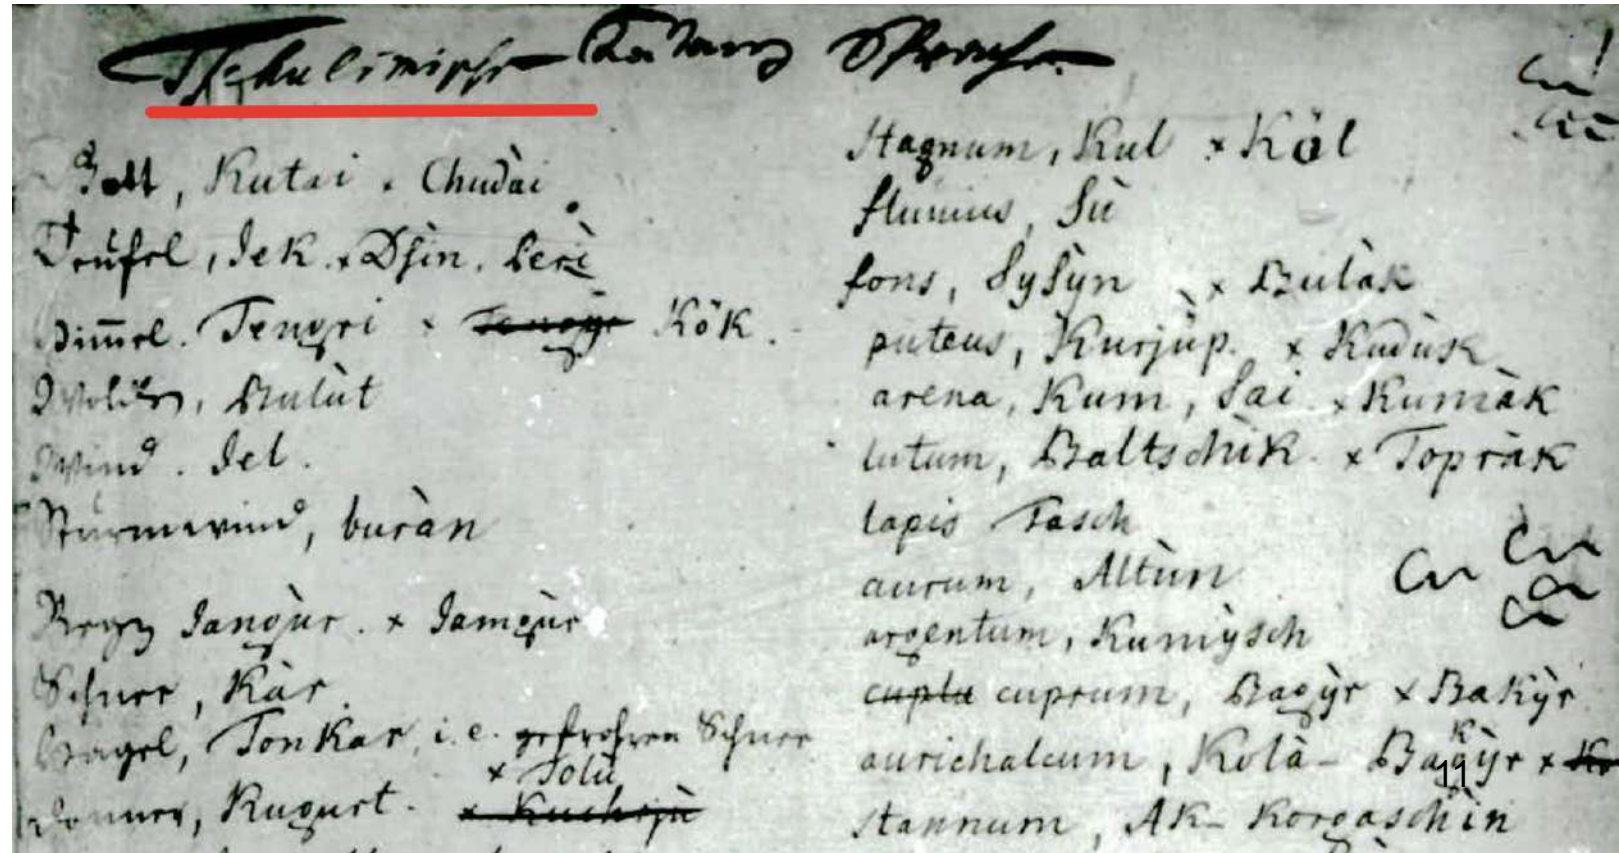 Tschulimische Tatarn Sprache.
Gott, Kutai . Chudài
Teüfel, Jek . x Dsin . Peri
Himel . Tengri x Kök .
Wolken, Bulut
Wind . Jel .
Sturmwind, buràn
Regen Jangur . x Jamgur
Schnee, Kar
Hagel, Tonkar, i.e. gefrohren Schnee
x Tolu
Donner, Kugurt .
Stagnum, Kul x Köl
fluvius, Su
fons, Sysyn x Bulàk
puteus, Kurjup . x Kudùk
arena, Kum, Sai . x Kumàk
lutum, Baltschik . x Topràk
lapis Tasch
aurum, Altùn
argentum, Kumysch
cupla cuprum, Bagyr x Bakyr
aurichalcum, Kolà - Bagyr x
stannum, AK - Korgaschin
11